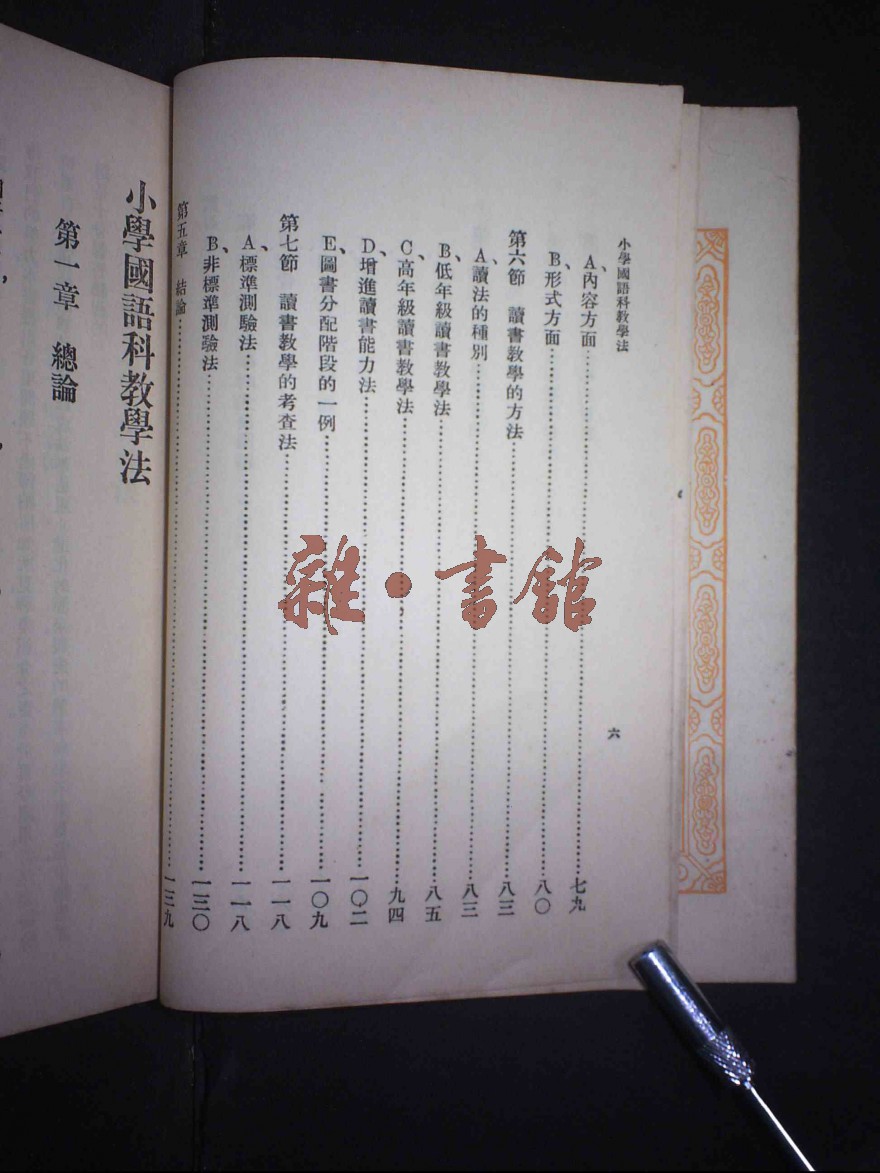 小學國語科教學法
六
A、內容方面……七九
B、形式方面……八〇
第六節　讀書教學的方法……八三
A、讀法的種別……八三
B、低年級讀書教學法……八五
C、高年級讀書教學法……九四
D、增進讀書能力法……一〇二
E、圖書分配階段的一例……一〇九
第七節　讀書教學的考查法……一一八
A、標準測驗法……一一八
B、非標準測驗法……一三〇
第五章　結論……一三九
小學國語科教學法
第一章　總論
雜·書館